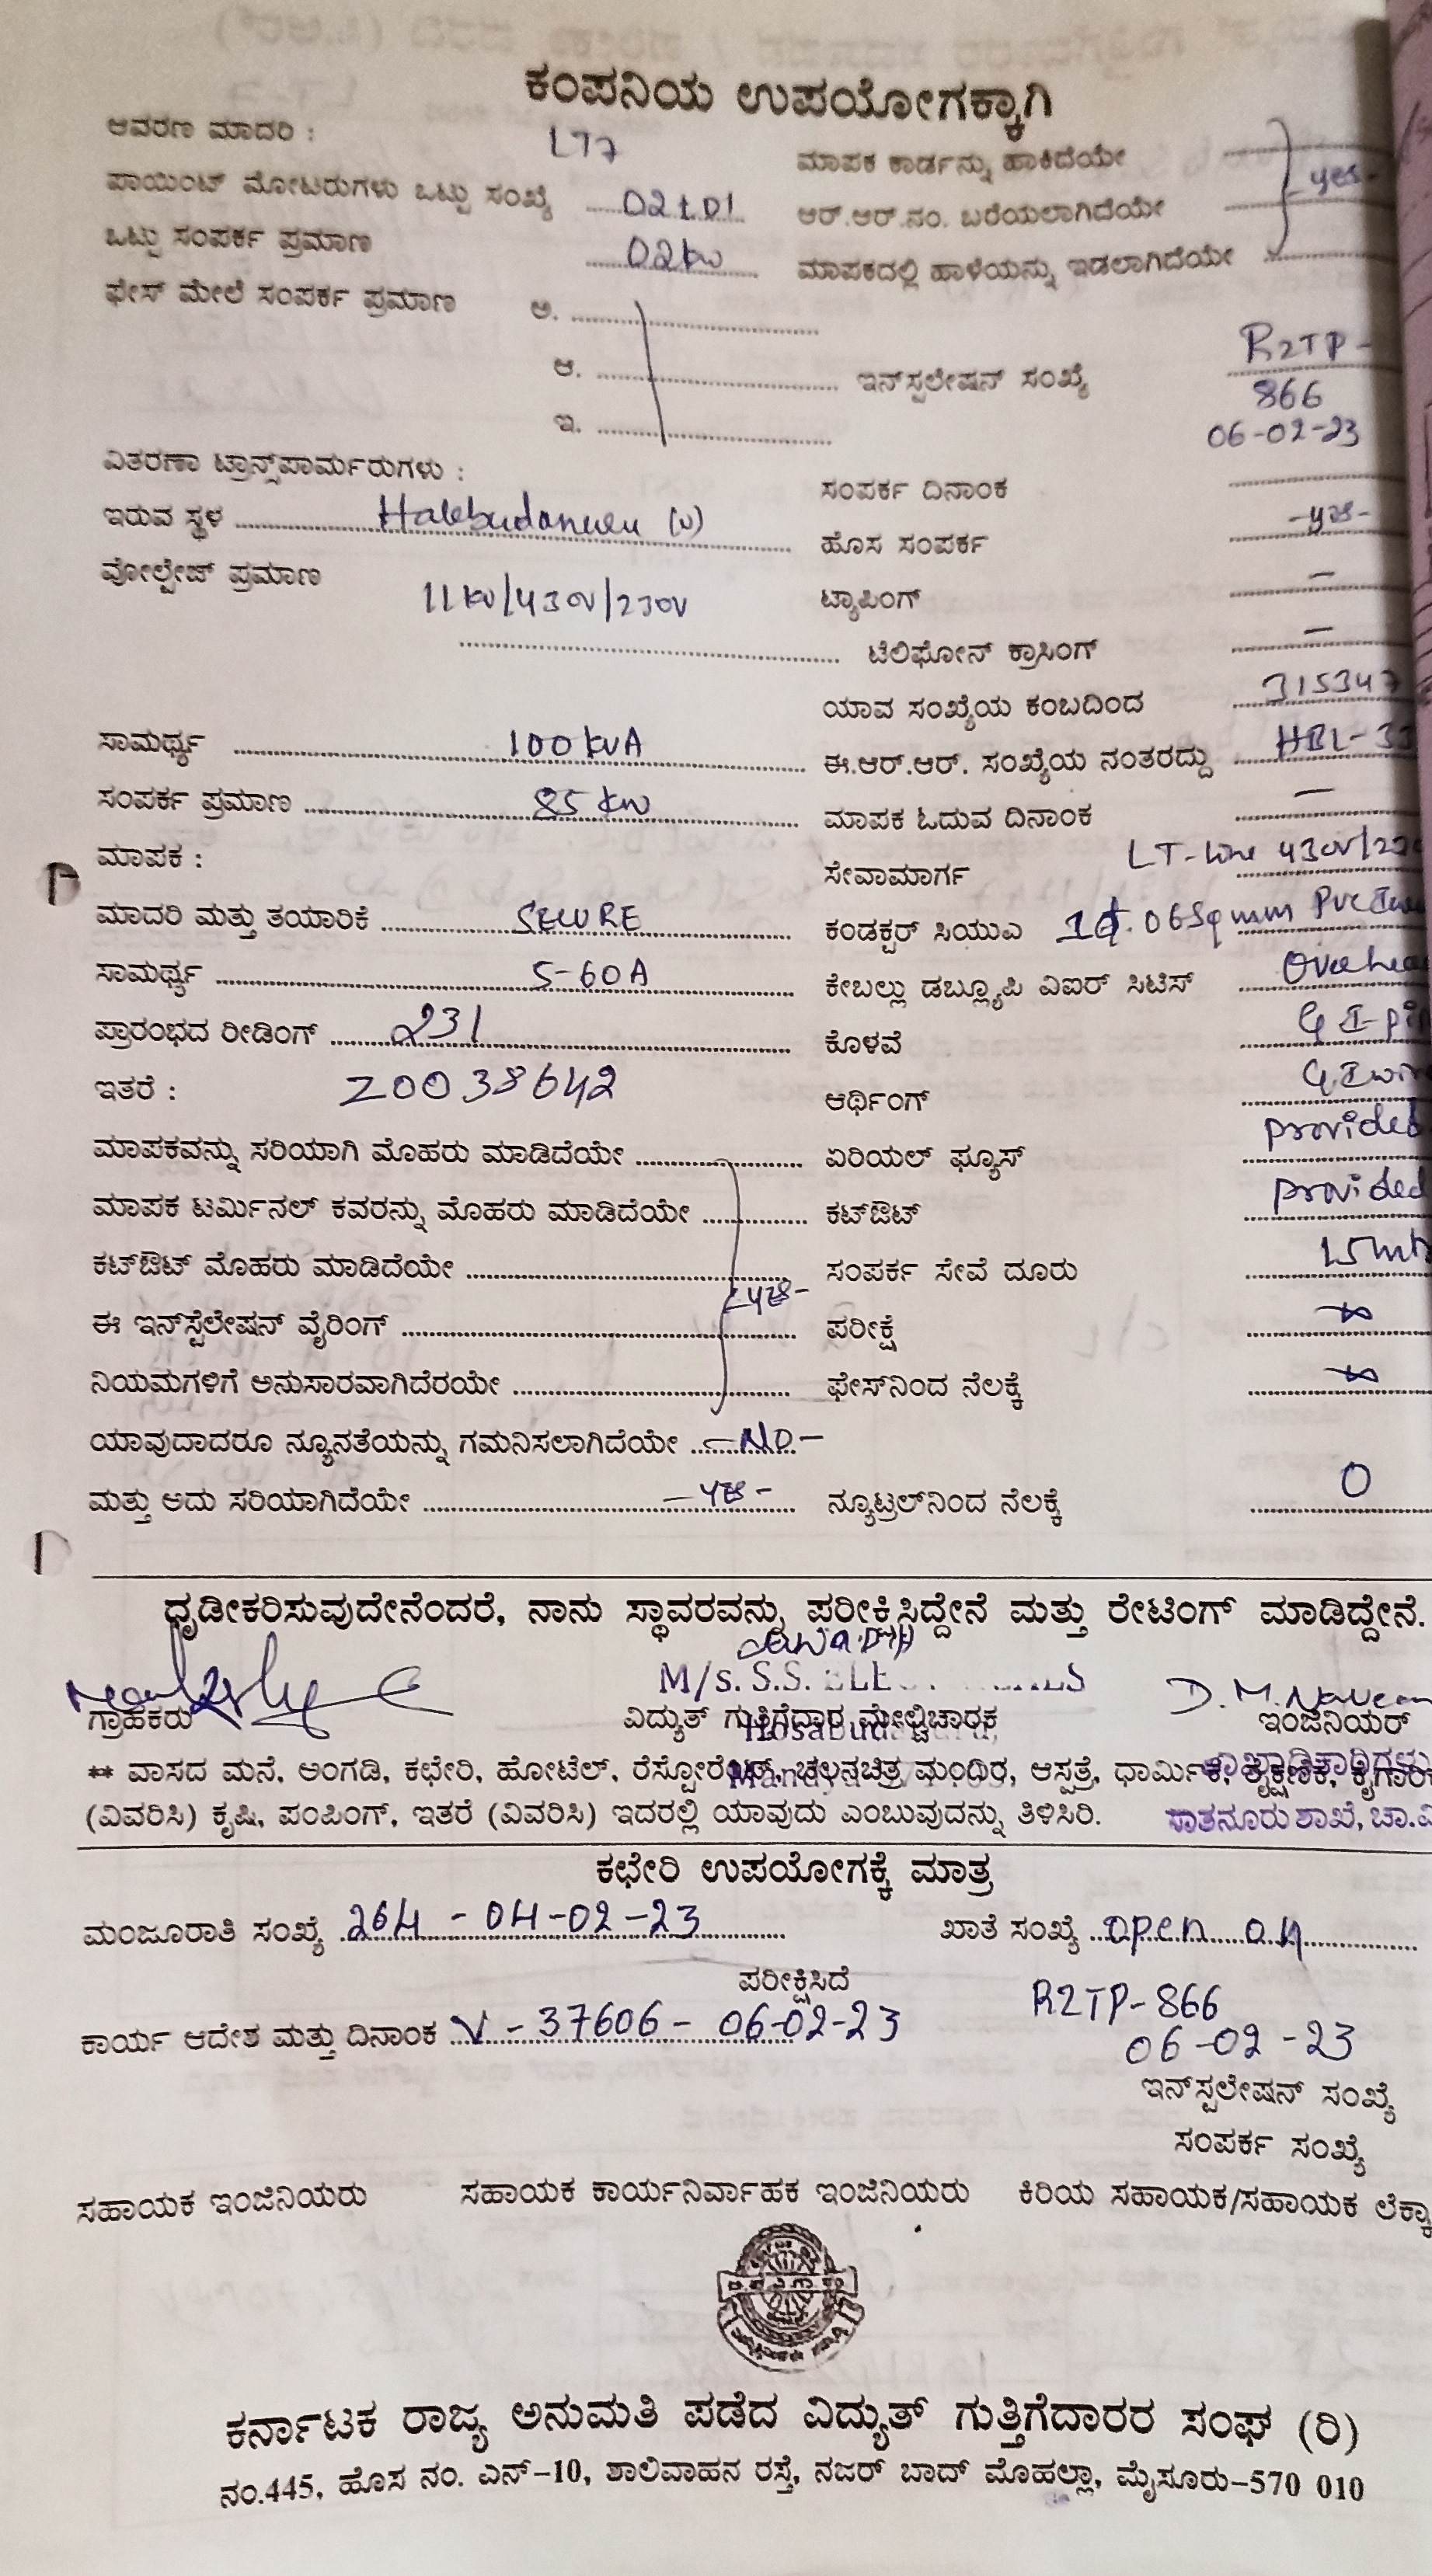 ಕಂಪನಿಯ ಉಪಯೋಗಕ್ಕಾಗಿ
ಆವರಣ ಮಾದರಿ : LT7
ಮಾಪಕ ಕಾರ್ಡನ್ನು ಹಾಕಿದೆಯೇ
ಪಾಯಿಂಟ್ ಮೋಟರುಗಳು ಒಟ್ಟು ಸಂಖ್ಯೆ 02+01
ಆರ್.ಆರ್.ನಂ. ಬರೆಯಲಾಗಿದೆಯೇ yes-
ಒಟ್ಟು ಸಂಪರ್ಕ ಪ್ರಮಾಣ 02kw
ಮಾಪಕದಲ್ಲಿ ಹಾಳೆಯನ್ನು ಇಡಲಾಗಿದೆಯೇ
ಫೇಸ್ ಮೇಲೆ ಸಂಪರ್ಕ ಪ್ರಮಾಣ ಅ.
ಆ. ಇನ್‌ಸ್ಪಲೇಷನ್ ಸಂಖ್ಯೆ R2TP-
866
ಇ. 06-02-23
ವಿತರಣಾ ಟ್ರಾನ್ಸ್‌ಪಾರ್ಮರುಗಳು :
ಸಂಪರ್ಕ ದಿನಾಂಕ
ಇರುವ ಸ್ಥಳ
ಹೊಸ ಸಂಪರ್ಕ -yes-
ವೋಲ್ಟೇಜ್ ಪ್ರಮಾಣ 11kv/430V/230V
ಟ್ಯಾಪಿಂಗ್ –
ಟೆಲಿಫೋನ್ ಕ್ರಾಸಿಂಗ್ –
ಯಾವ ಸಂಖ್ಯೆಯ ಕಂಬದಿಂದ 315347
ಸಾಮರ್ಥ್ಯ 100kVA
ಈ.ಆರ್.ಆರ್. ಸಂಖ್ಯೆಯ ನಂತರದ್ದು
ಸಂಪರ್ಕ ಪ್ರಮಾಣ 85 kw
ಮಾಪಕ ಓದುವ ದಿನಾಂಕ –
ಮಾಪಕ :
ಸೇವಾಮಾರ್ಗ LT-line 430V/
ಮಾದರಿ ಮತ್ತು ತಯಾರಿಕೆ SECURE
ಕಂಡಕ್ಟರ್ ಸಿಯುಎ 06Sqmm PVC
ಸಾಮರ್ಥ್ಯ 5-60A
ಕೇಬಲ್ಲು ಡಬ್ಲ್ಯೂಪಿ ವಿಐರ್ ಸಿಟಿಸ್
ಪ್ರಾರಂಭದ ರೀಡಿಂಗ್ 231
ಕೊಳವೆ
ಇತರೆ : Z0038642
ಆರ್ಥಿಂಗ್
ಮಾಪಕವನ್ನು ಸರಿಯಾಗಿ ಮೊಹರು ಮಾಡಿದೆಯೇ
ಏರಿಯಲ್ ಫ್ಯೂಸ್ provided
ಮಾಪಕ ಟರ್ಮಿನಲ್ ಕವರನ್ನು ಮೊಹರು ಮಾಡಿದೆಯೇ
ಕಟ್‌ಔಟ್ provided
ಕಟ್‌ಔಟ್ ಮೊಹರು ಮಾಡಿದೆಯೇ -yes-
ಸಂಪರ್ಕ ಸೇವೆ ದೂರು
ಈ ಇನ್‌ಸ್ಪೆಲೇಷನ್ ವೈರಿಂಗ್
ಪರೀಕ್ಷೆ ∞
ನಿಯಮಗಳಿಗೆ ಅನುಸಾರವಾಗಿದೆರಯೇ
ಫೇಸ್‌ನಿಂದ ನೆಲಕ್ಕೆ ∞
ಯಾವುದಾದರೂ ನ್ಯೂನತೆಯನ್ನು ಗಮನಿಸಲಾಗಿದೆಯೇ –No–
ಮತ್ತು ಅದು ಸರಿಯಾಗಿದೆಯೇ –yes–
ನ್ಯೂಟ್ರಲ್‌ನಿಂದ ನೆಲಕ್ಕೆ 0
ಧೃಡೀಕರಿಸುವುದೇನೆಂದರೆ, ನಾನು ಸ್ಥಾವರವನ್ನು ಪರೀಕ್ಷಿಸಿದ್ದೇನೆ ಮತ್ತು ರೇಟಿಂಗ್ ಮಾಡಿದ್ದೇನೆ.
M/s. S.S.
ಗ್ರಾಹಕರು ವಿದ್ಯುತ್ ಗುತ್ತಿಗೆದಾರ ಮೇಲ್ವಿಚಾರಕ ಇಂಜಿನಿಯರ್
** ವಾಸದ ಮನೆ, ಅಂಗಡಿ, ಕಛೇರಿ, ಹೋಟೆಲ್, ಚಲನಚಿತ್ರ ಮಂದಿರ, ಆಸ್ಪತ್ರೆ,
(ವಿವರಿಸಿ) ಕೃಷಿ, ಪಂಪಿಂಗ್, ಇತರೆ (ವಿವರಿಸಿ) ಇದರಲ್ಲಿ ಯಾವುದು ಎಂಬುವುದನ್ನು ತಿಳಿಸಿರಿ. ಸಾತನೂರು ಶಾಖೆ,
ಕಛೇರಿ ಉಪಯೋಗಕ್ಕೆ ಮಾತ್ರ
ಮಂಜೂರಾತಿ ಸಂಖ್ಯೆ 264 - 04-02-23 ಖಾತೆ ಸಂಖ್ಯೆ open on
ಪರೀಕ್ಷಿಸಿದೆ R2TP-866
ಕಾರ್ಯ ಆದೇಶ ಮತ್ತು ದಿನಾಂಕ V - 37606 - 06-02-23 06-02-23
ಇನ್‌ಸ್ಪಲೇಷನ್ ಸಂಖ್ಯೆ
ಸಂಪರ್ಕ ಸಂಖ್ಯೆ
ಸಹಾಯಕ ಇಂಜಿನಿಯರು ಸಹಾಯಕ ಕಾರ್ಯನಿರ್ವಾಹಕ ಇಂಜಿನಿಯರು ಕಿರಿಯ ಸಹಾಯಕ/ಸಹಾಯಕ
ಕರ್ನಾಟಕ ರಾಜ್ಯ ಅನುಮತಿ ಪಡೆದ ವಿದ್ಯುತ್ ಗುತ್ತಿಗೆದಾರರ ಸಂಘ (ರಿ)
ನಂ.445, ಹೊಸ ನಂ. ಎನ್–10, ಶಾಲಿವಾಹನ ರಸ್ತೆ, ನಜರ್ ಬಾದ್ ಮೊಹಲ್ಲಾ, ಮೈಸೂರು–570 010